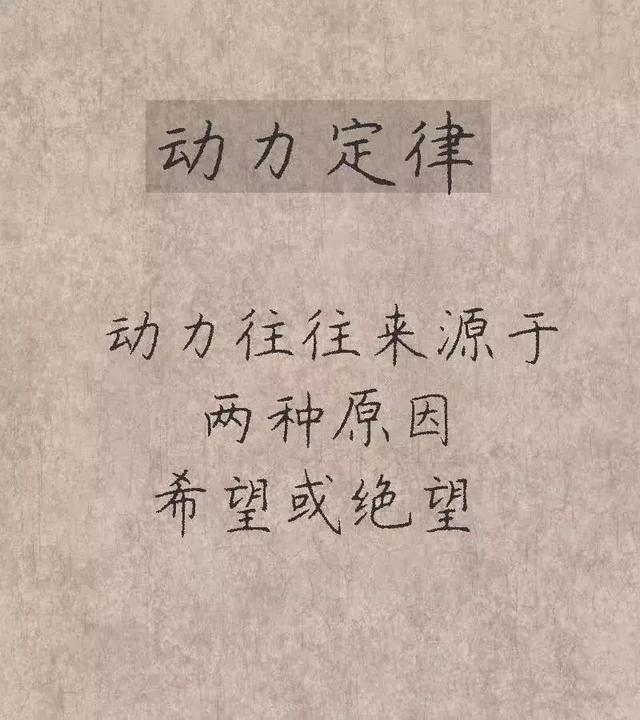 动力定律
动力往往来源于
两种原因
希望或绝望